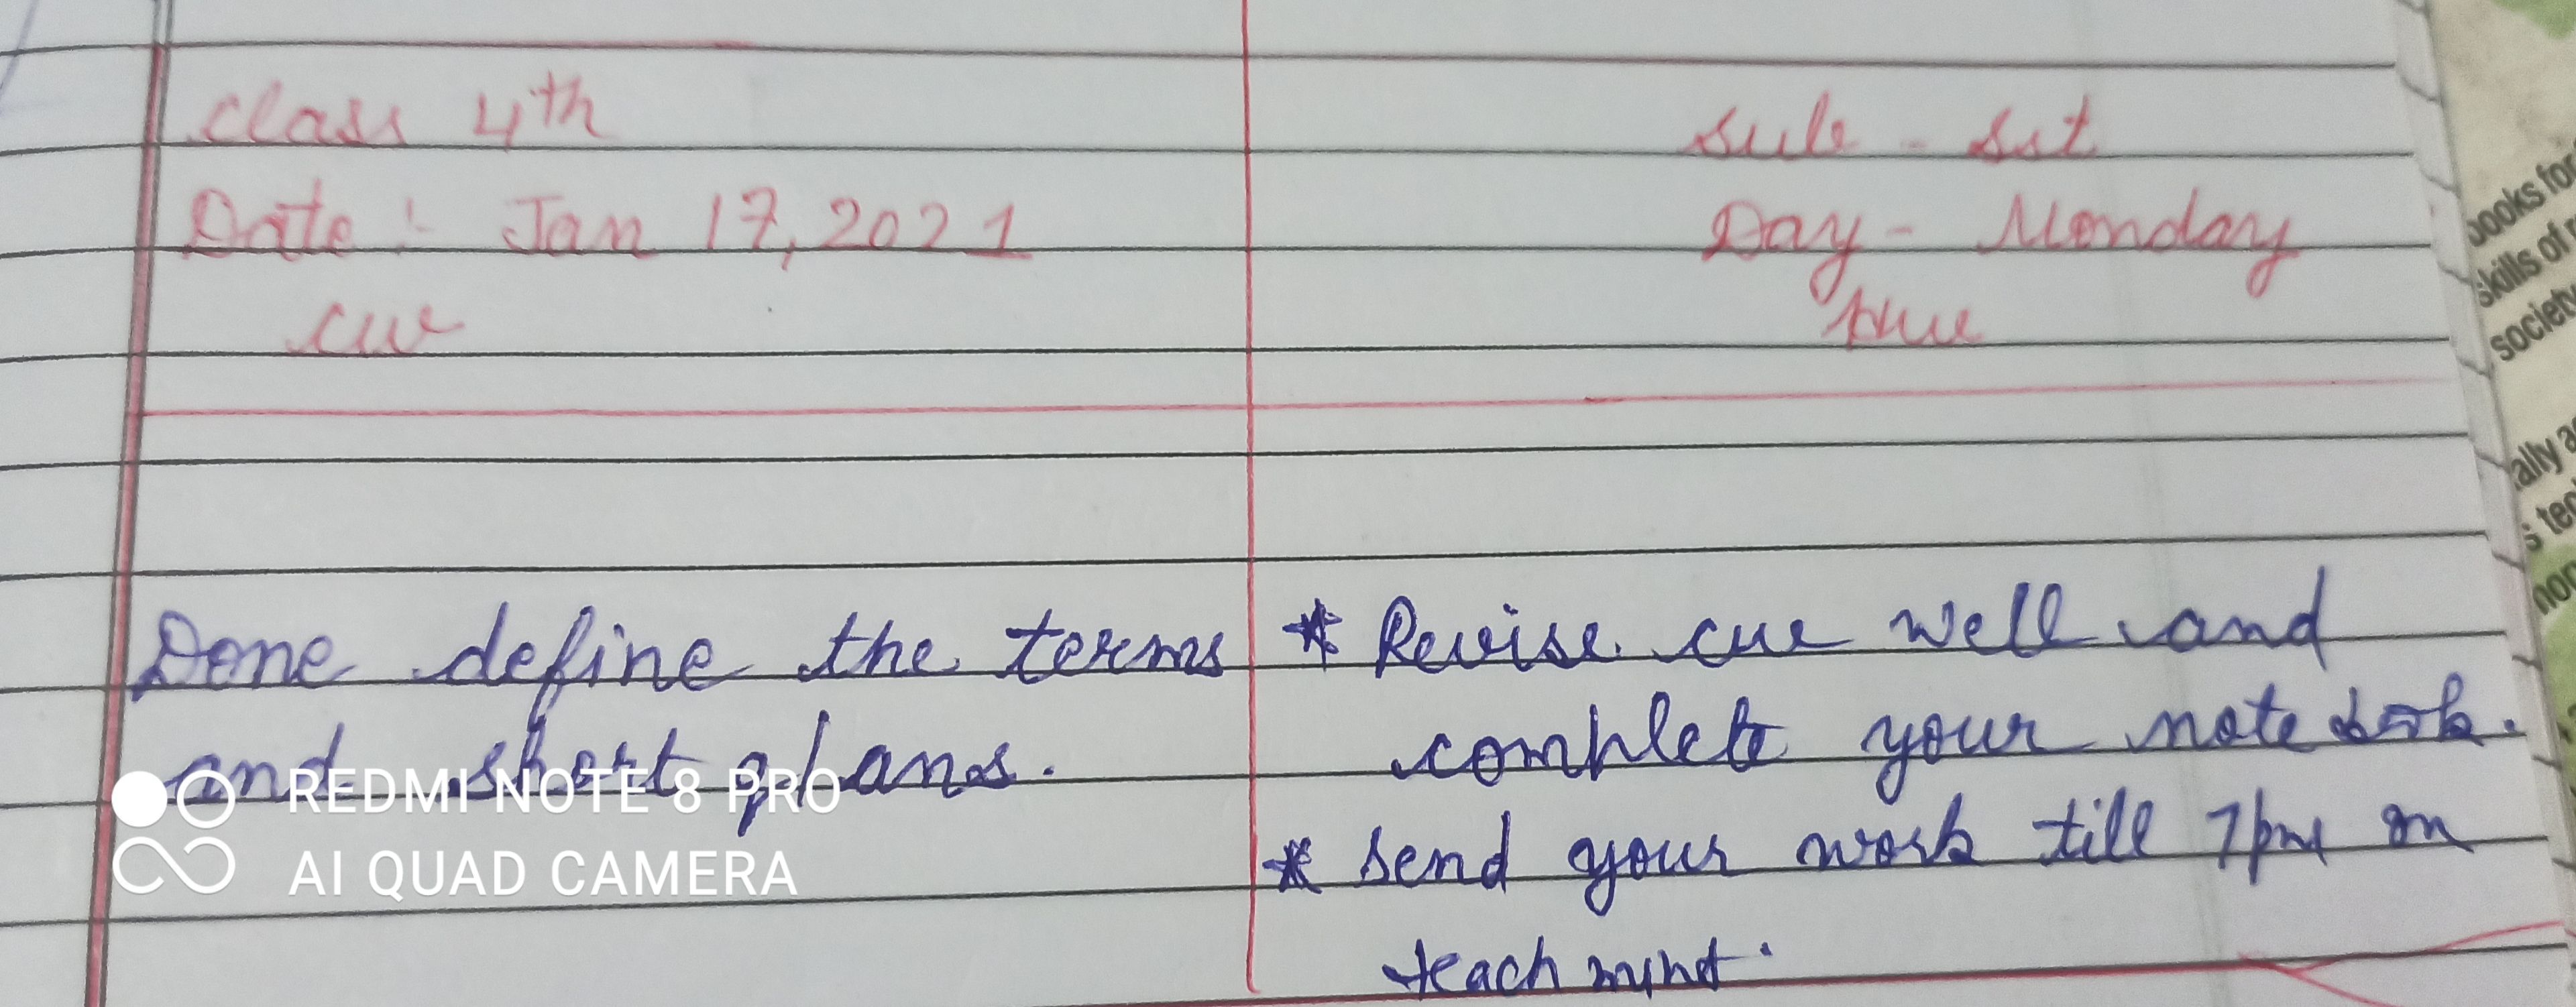 Class 4th
Sub - Sst
Date :- Jan 17, 2021
Day - Monday
cw
Hw
Done define the terms
and short q/ans.
* Revise cw well and
complete your note book.
* Send your work till 7pm on
teach mint.
REDMI NOTE 8 PRO
AI QUAD CAMERA
books for
skills of
society
ally a